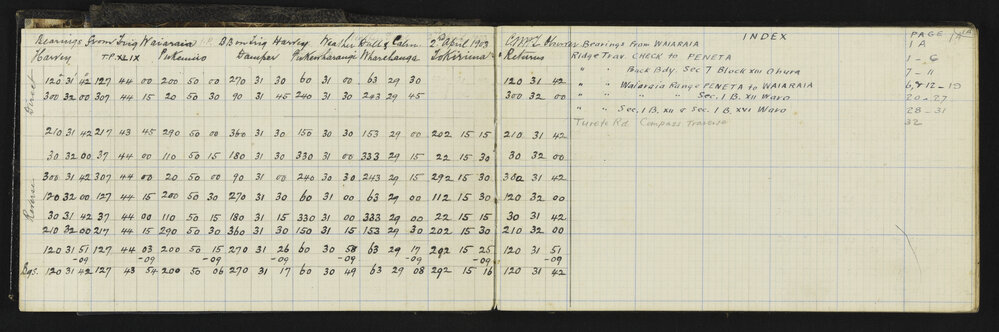 Bearings from Trig Waiaraia DB on Trig Harvey Weather Dull & Calm 2nd April 1903
Harvey T.P. XLIX Pukemiro Damper Pukewharangi Wharehanga Returns
Direct
120 31 42 127 44 00 200 50 00 270 31 30 60 31 00 63 29 30 120 31 42
300 32 00 307 44 15 20 50 30 90 31 45 240 31 30 243 29 45 300 32 00
210 31 42 217 43 45 290 50 00 360 31 30 150 30 30 153 29 00 202 15 15 210 31 42
30 32 00 37 44 00 110 50 15 180 31 30 330 31 00 333 29 15 22 15 30 30 32 00
Reverse
300 31 42 307 44 00 20 50 00 90 31 00 240 30 30 243 29 15 292 15 30 302 31 42
120 32 00 127 44 15 200 50 30 270 31 30 60 31 00 63 29 30 112 15 30 120 32 00
30 31 42 37 44 00 110 50 15 180 31 15 330 31 00 333 29 00 22 15 15 30 31 42
210 32 00 217 44 15 290 50 30 360 31 30 150 31 15 153 29 30 202 15 30 210 32 00
120 31 51 127 44 03 200 50 15 270 31 26 60 30 58 63 29 17 292 15 25 120 31 51
-09 -09 -09 -09 -09 -09 -09 -09
Bgs. 120 31 42 127 43 54 200 50 06 270 31 17 60 30 49 63 29 08 292 15 16 120 31 42
INDEX PAGE 1A
Bearings From WAIARAIA 1 A
Ridge Trav. CHECK to PENETA 1 - 6
" " Back Bdy. Sec 7 Block XIII Ohura 7 - 11
" " Waiaraia Range PENETA to WAIARAIA 6, & 12 - 19
" " " " Sec. 1 B. XII Waro 20 - 27
" " Sec. 1 B. XII & Sec. 1 B. XVI Waro 28 - 31
Rd Compass Traverse 32